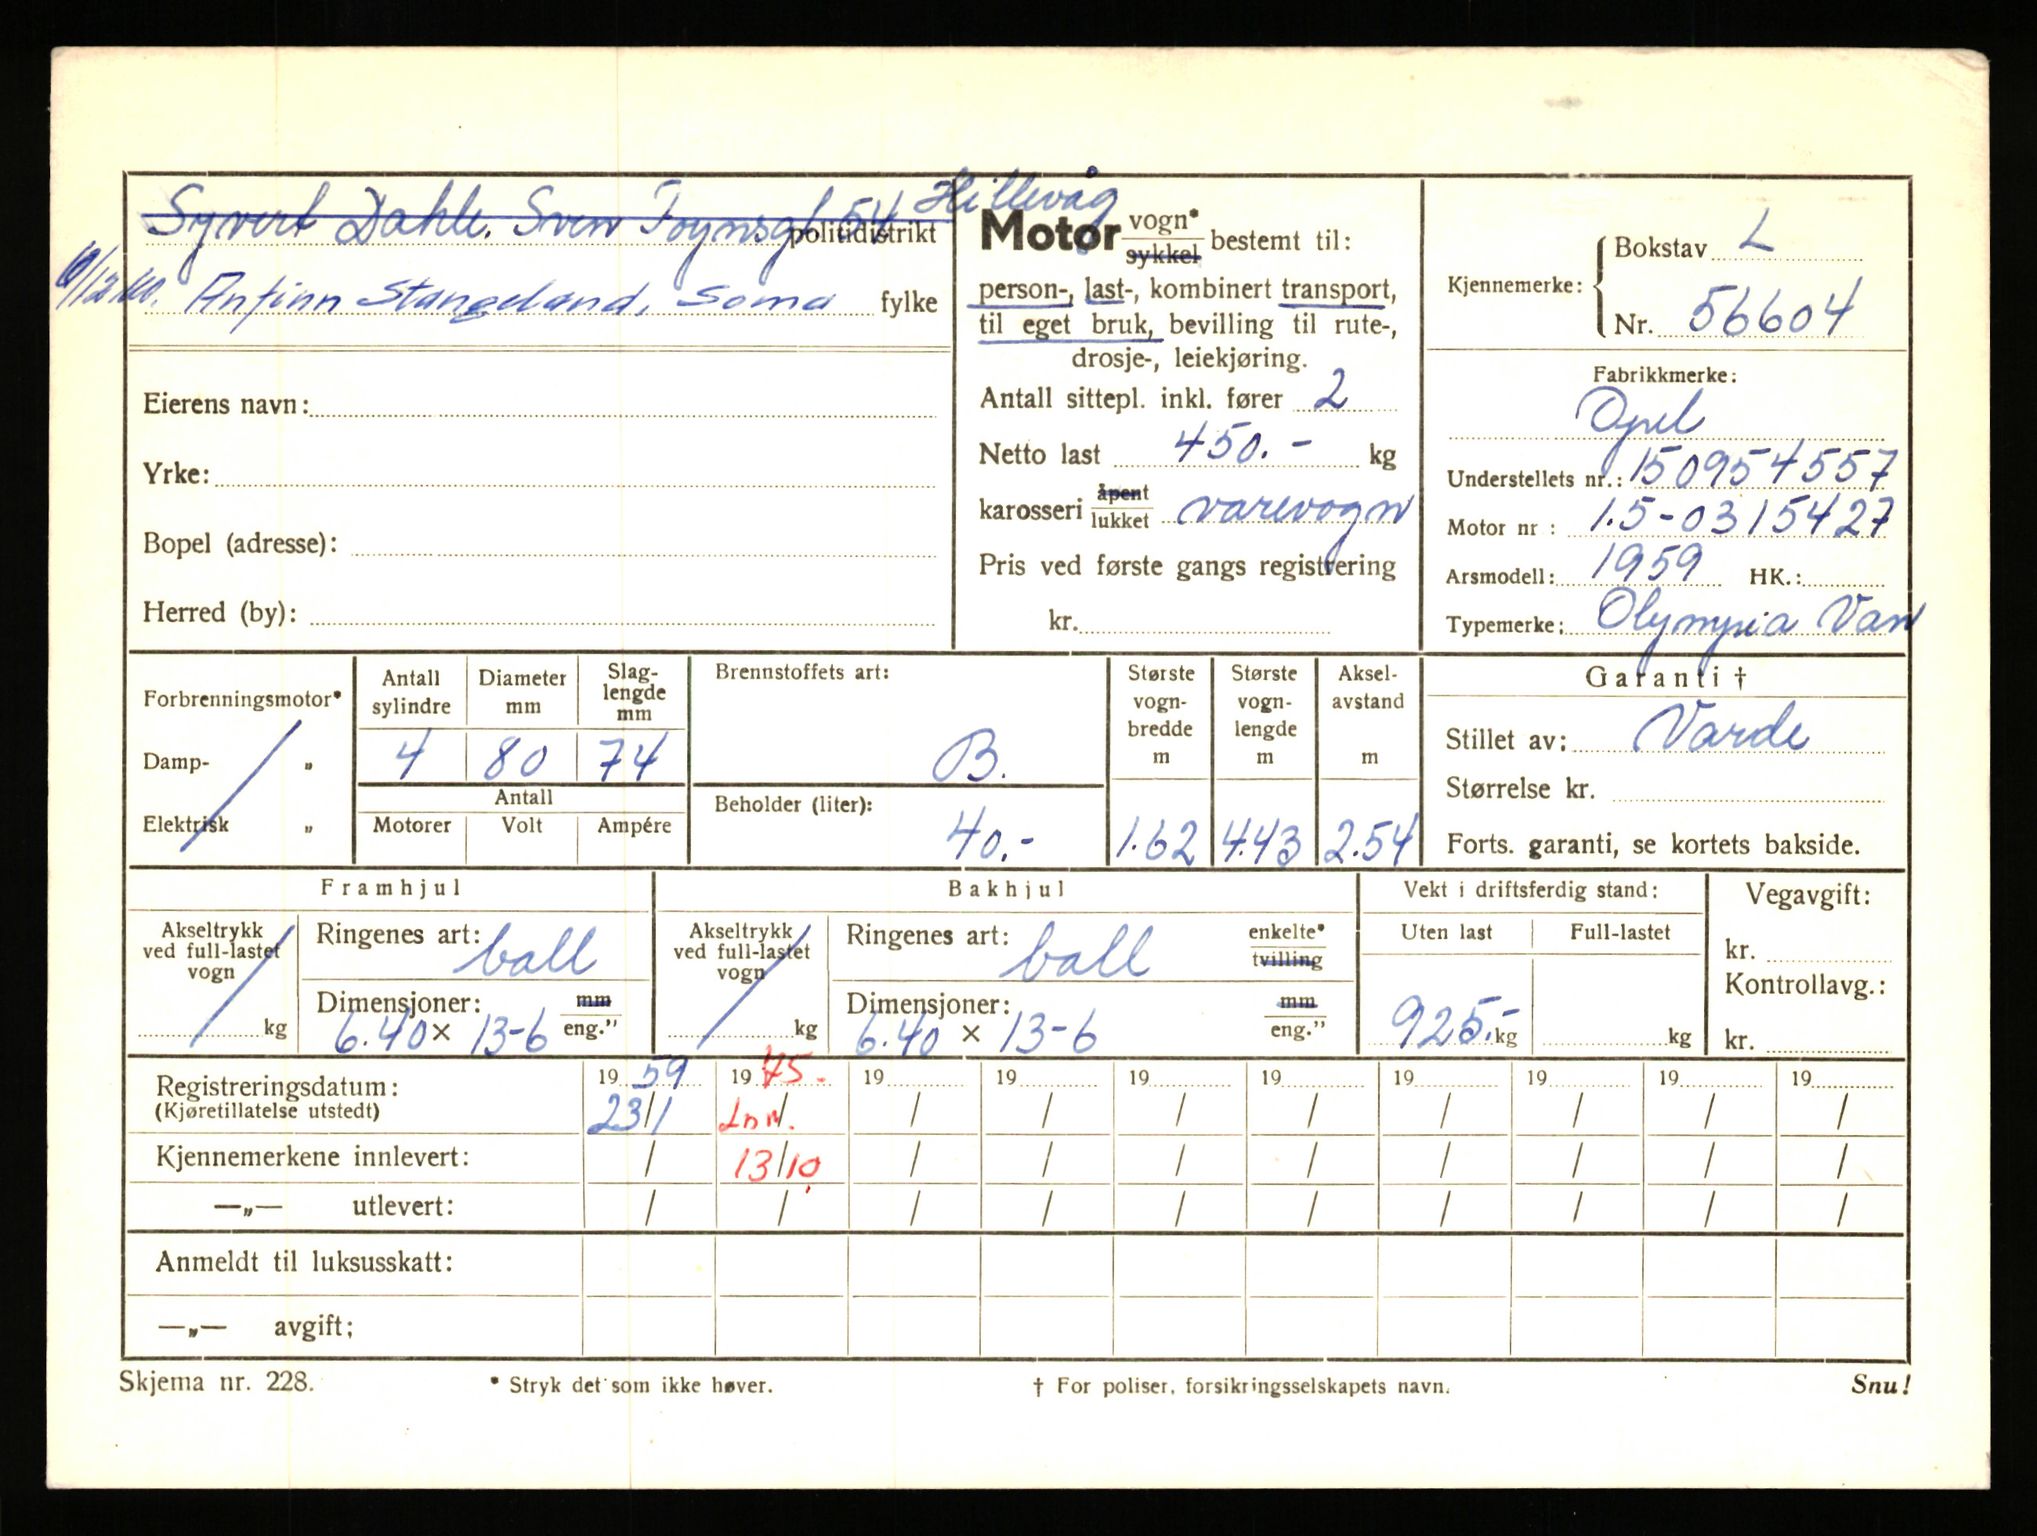 Syvert Dahle. Sven Foynsgt 54 Hillevåg
politidistrikt
Anfinn Stangeland, Soma fylke
Eierens navn:
Yrke:
Bopel (adresse):
Herred (by):
Motor vogn* sykkel bestemt til:
person-, last-, kombinert transport,
til eget bruk, bevilling til rute-,
drosje-, leiekjøring.
Antall sittepl. inkl. fører 2
Netto last 450.- kg
karosseri åpent lukket varevogn
Pris ved første gangs registrering
kr.
Kjennemerke: Bokstav L
Nr. 56604
Fabrikkmerke:
Opel
Understellets nr.: 150954557
Motor nr : 1.5-0315427
Arsmodell: 1959 HK.:
Typemerke: Olympia Van
Forbrenningsmotor*
Damp- „
Elektrisk „
Antall sylindre
Diameter mm
Slag-lengde mm
4 80 74
Antall
Motorer Volt Ampére
Brennstoffets art:
B.
Beholder (liter):
40.-
Største vogn-bredde m
1.62
Største vogn-lengde m
4.43
Aksel-avstand m
2.54
Garanti †
Stillet av: Varde
Størrelse kr.
Forts. garanti, se kortets bakside.
Framhjul
Akseltrykk ved full-lastet vogn
kg
Ringenes art: ball
Dimensjoner: mm
6.40 × 13-6 eng.”
Bakhjul
Akseltrykk ved full-lastet vogn
kg
Ringenes art: ball enkelte* tvilling
Dimensjoner: mm
6.40 × 13-6 eng.”
Vekt i driftsferdig stand:
Uten last Full-lastet
925.- kg kg
Vegavgift:
kr.
Kontrollavg.:
kr.
Registreringsdatum: 19 59 19 75. 19 19 19 19 19 19 19 19
(Kjøretillatelse utstedt) 23/1 / / / / / / / / /
Kjennemerkene innlevert: / 13/10 / / / / / / / /
—„— utlevert: / / / / / / / / / /
Anmeldt til luksusskatt:
—„— avgift;
Skjema nr. 228. * Stryk det som ikke høver. † For poliser, forsikringsselskapets navn. Snu!